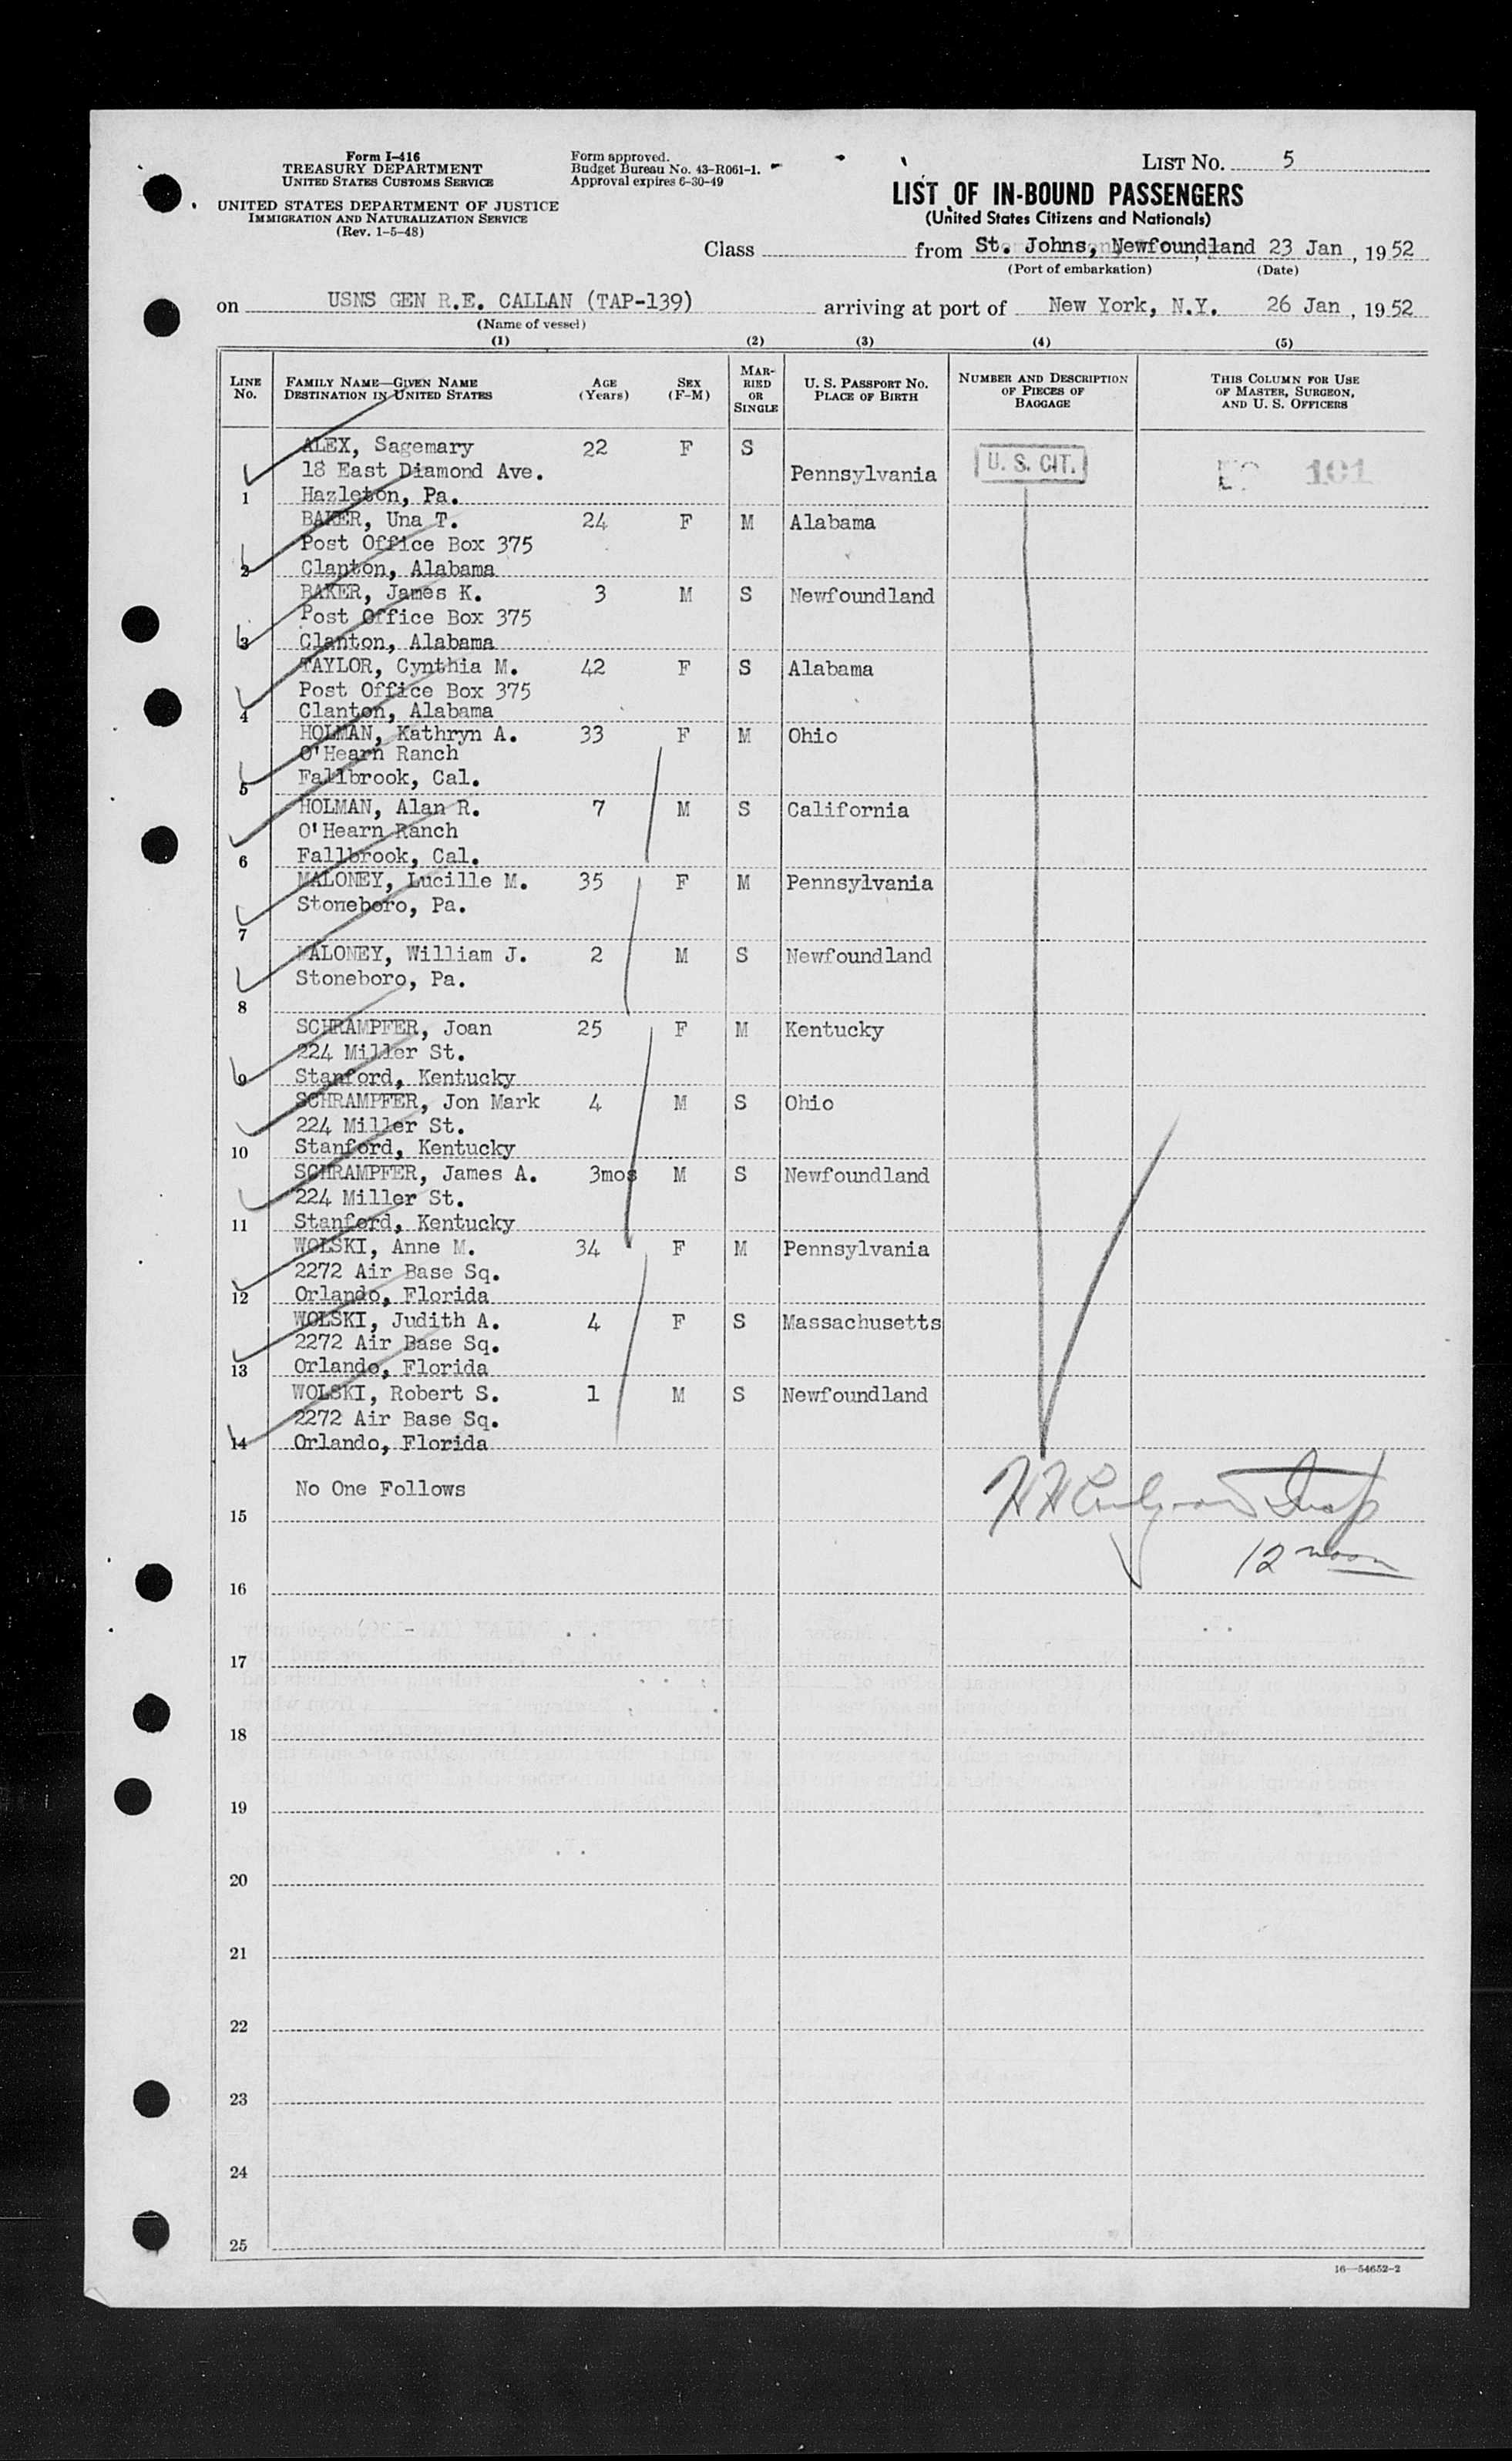 Form I-416
TREASURY DEPARTMENT
UNITED STATES CUSTOMS SERVICE
UNITED STATES DEPARTMENT OF JUSTICE
IMMIGRATION AND NATURALIZATION SERVICE
(Rev. 1-5-48)
Form approved.
Budget Bureau No. 43-R061-1.
Approval expires 6-30-49
LIST NO. 5
LIST OF IN-BOUND PASSENGERS
(United States Citizens and Nationals)
Class from St. Johns, Newfoundland 23 Jan, 1952
(Port of embarkation) (Date)
on USNS GEN R.E. CALLAN (TAP-139) arriving at port of New York, N.Y. 26 Jan, 1952
(Name of vessel)
(1) (2) (3) (4) (5)
LINE No. FAMILY NAME—GIVEN NAME DESTINATION IN UNITED STATES AGE (Years) SEX (F-M) MARRIED OR SINGLE U. S. PASSPORT NO. PLACE OF BIRTH NUMBER AND DESCRIPTION OF PIECES OF BAGGAGE THIS COLUMN FOR USE OF MASTER, SURGEON, AND U. S. OFFICERS
ALEX, Sagemary 22 F S
18 East Diamond Ave. Pennsylvania U. S. CIT. 101
1 Hazleton, Pa.
BAKER, Una T. 24 F M Alabama
Post Office Box 375
2 Clanton, Alabama
BAKER, James K. 3 M S Newfoundland
Post Office Box 375
3 Clanton, Alabama
TAYLOR, Cynthia M. 42 F S Alabama
Post Office Box 375
4 Clanton, Alabama
HOLMAN, Kathryn A. 33 F M Ohio
O'Hearn Ranch
5 Fallbrook, Cal.
HOLMAN, Alan R. 7 M S California
O'Hearn Ranch
6 Fallbrook, Cal.
MALONEY, Lucille M. 35 F M Pennsylvania
Stoneboro, Pa.
7
MALONEY, William J. 2 M S Newfoundland
Stoneboro, Pa.
8
SCHRAMPFER, Joan 25 F M Kentucky
224 Miller St.
9 Stanford, Kentucky
SCHRAMPFER, Jon Mark 4 M S Ohio
224 Miller St.
10 Stanford, Kentucky
SCHRAMPFER, James A. 3mos M S Newfoundland
224 Miller St.
11 Stanford, Kentucky
WOLSKI, Anne M. 34 F M Pennsylvania
2272 Air Base Sq.
12 Orlando, Florida
WOLSKI, Judith A. 4 F S Massachusetts
2272 Air Base Sq.
13 Orlando, Florida
WOLSKI, Robert S. 1 M S Newfoundland
2272 Air Base Sq.
14 Orlando, Florida
No One Follows
15
12 noon
16
17
18
19
20
21
22
23
24
25
16—54652-2